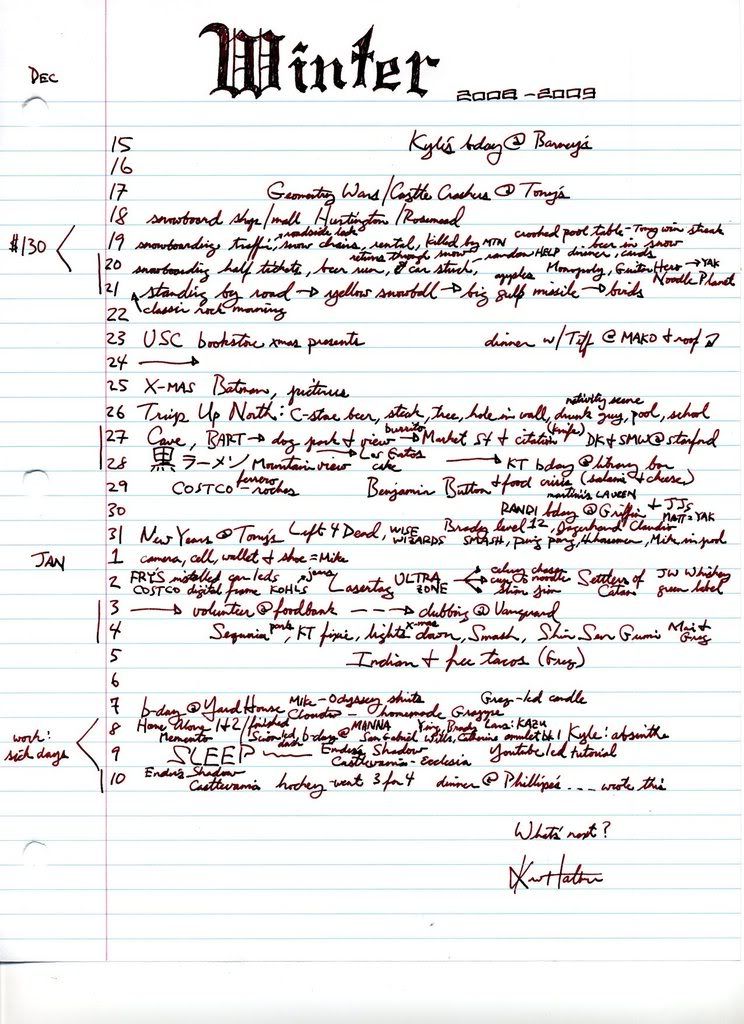 Winter
2008-2009
DEC
15 Kyle's bday @ Barney's
16
17 Geometry Wars/Castle Crashers @ Tony's
18 snowboard shop/mall Huntington/Rosemead
roadside lack crooked pool table - Tony win steak
$130
19 snowboarding traffic, snow chains, rental, killed by MTN beer in snow
returns through snow random HELP dinner, cards
20 snowboarding half tickets, beer run, car stuck, apples Monopoly, Guitar Hero → YAK
21 standing by road → yellow snowball → big gulp missile → birds Noodle Planet
22 classic rock morning
23 USC bookstore xmas presents dinner w/ Tiff @ MAKO & roof
24
25 X-MAS Batman, pictures
nativity scene
26 Trip Up North: C-store beer, steak, tree, hole in wall, drunk guy, pool, school
burrito (knife)
27 Cave, BART → dog park & view → Market St & citation DK & SMW @ stanford
→ Los Gatos
28 黒 ラーメン Mountain view cake → KT bday @ library bar
29 COSTCO ferrero-roches Benjamin Button & food crisis (salami & cheese)
martini's LAUREN
30 RANDI bday @ Griffin & JJs
MATT = YAK
31 New Years @ Tony's Left 4 Dead, WISE WIZARDS Brady level 12, Jagerhand Claudio
SMASH, ping pong, 4 housemen, Mike in pool
JAN
1 camera, cell, wallet & shoe = Mike
2 FRY'S installed car leds jeans ULTRA celery chaser Settlers of JW Whiskey
COSTCO digital frame KOHLS Lasertag ZONE cup o noodle Catan green label
slim jim
3 → volunteer @ foodbank ---> clubbing @ Vanguard
park x-mas
4 Sequoia, KT fixie, lights down, Smash, Shin Sen Gumi Mai & Greg
5 Indian & free tacos (Greg)
6
7 b-day @ Yard House Mike - Odyssey shirts Greg - led candle
homemade
work: sick days
8 Home Alone 1&2/finished @ MANNA Ying, Brady Lars: KAZU
Memento Scion led dash b-day San Gabriel Wills, Catherine amulet bk 1 Kyle: absinthe
9 SLEEP Ender's Shadow Youtube led tutorial
Castlevania - Ecclesia
10 Ender's Shadow
Castlevania hockey went 3 for 4 dinner @ Phillipe's ... wrote this
What's next?